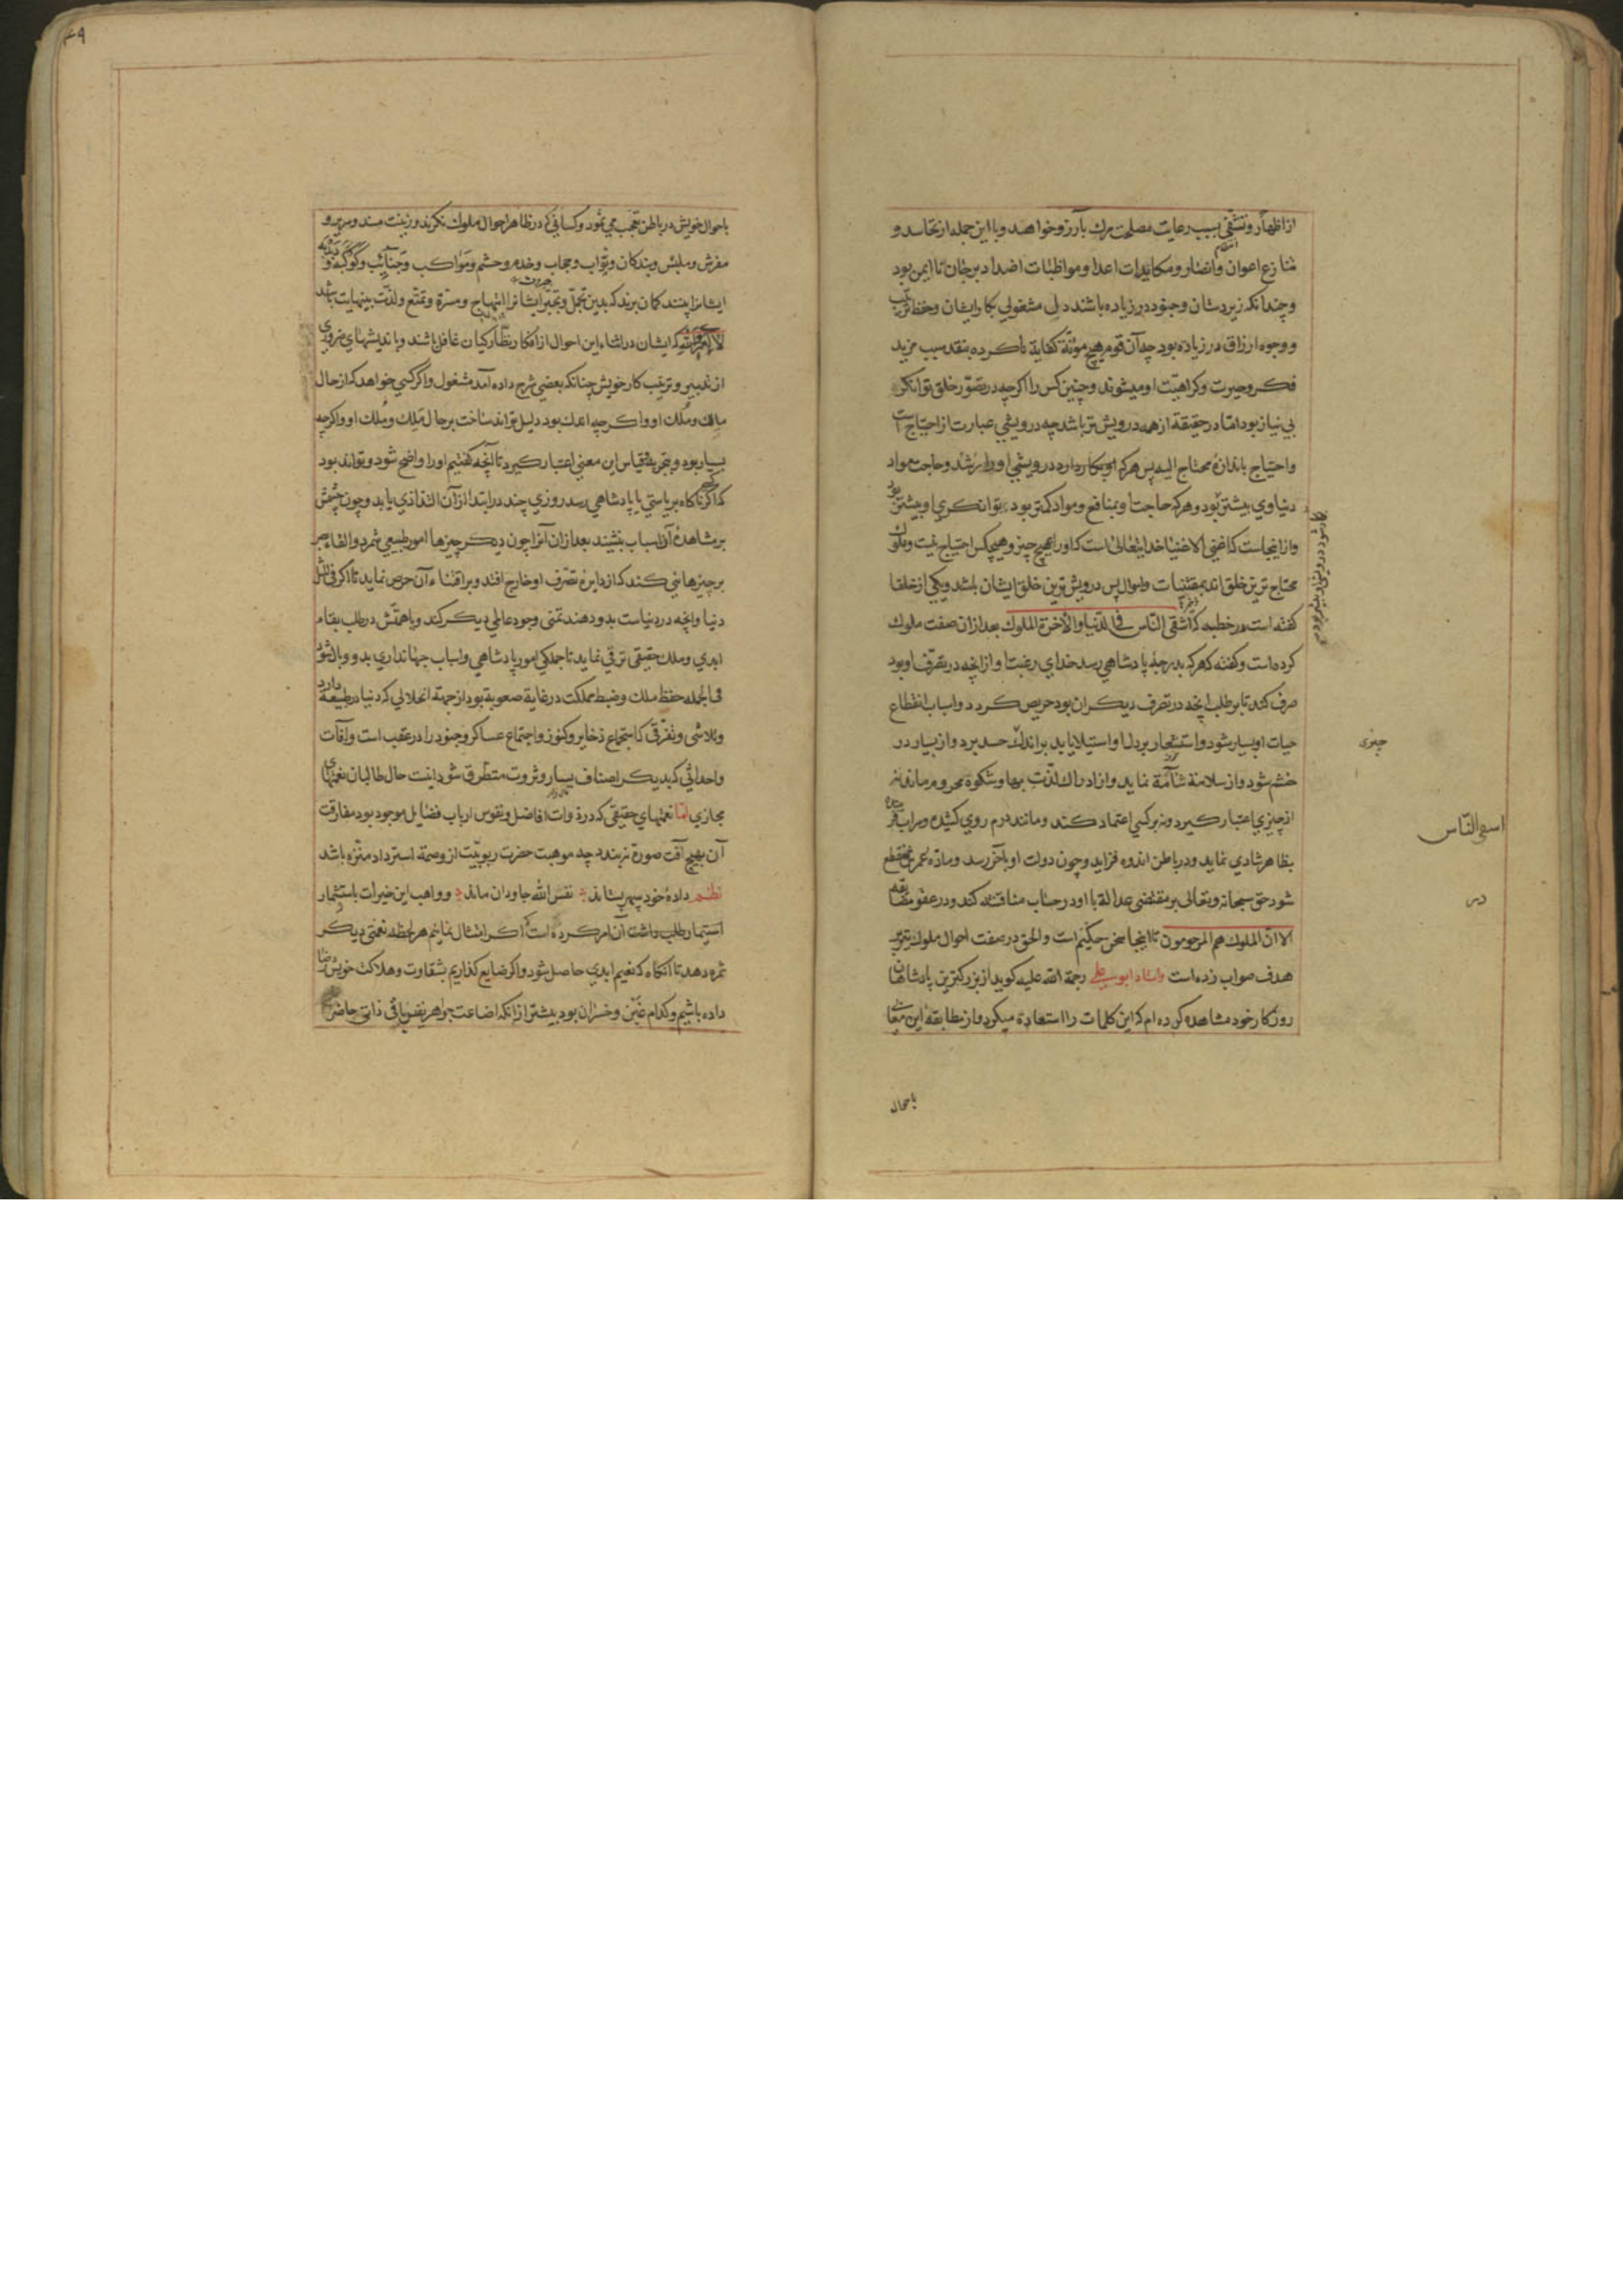 از اظهار و تشفی بسبب رعایت مصلحت مرک بآرزو خواهد و با این جمله از تحاسد و
تنازع اعوان و انصار و مکایدات اعدا و مواظبات اضداد برجان نا ایمن بود
و چندانکه زیردستان و جنود در زیاده باشند دل مشغولی بکار ایشان و حفظ ترتیب
و وجوه ارزاق در زیاده بود چه آن قوم هیچ مؤنة کفایة ناکرده بنقد سبب مزید
فکر و حیرت و کراهیت او میشوند و چنین کس را اکرچه در تصوّر خلق توانکر
بی نیاز بود امّا در حقیقة از همه درویش تر باشد چه درویشی عبارت از احتیاج است
و احتیاج باندازه محتاج الیه پس هرکه او
دنیاوی بیشتر بود و هرکه حاجت او بمنافع و مواد کمتر بود توانکری او بیشتر بود
و از اینجاست که اغنی الاغنیا خدا یتعالی است که او را بهیچ چیز و هیچکس احتیاج نیست و ملوک
محتاج ترین خلق اند بمقتنیات و اموال پس درویش ترین خلق ایشان باشند و یکی از خلفا
کفته است در خطبه که اشقی النّاس فی الدّنیا والآخرة الملوک بعد از ان صفت ملوک
کرده است و کفته که هرکه بدرجهٔ پادشاهی رسد خدای رغبت او از انچه در تصرّف او بود
صرف کند تا بر طلب انچه در تصرف دیکران بود حریص کردد و اسباب انقطاع
حیات او بسیار شود و استشعار بر دل او استیلا یابد بر اندک حسد برد و از بسیار در
خشم شود و از سلامة سآمة نماید و از ادراک لذّت بها و شکوه محروم ماند نه
از چیزی اعتبار کیرد و نه بر کسی اعتماد کند و مانند درم روی کشیده و سراب فریبنده
بظاهر شادی نماید و در باطن اندوه فزاید و چون دولت او بآخر رسد و مادّه عمرش منقطع
شود حق سبحانه و تعالی بر مقتضی عدالة با او در حساب مناقشه کند و در عفو مضایقه
الا انّ الملوک هم المرحومون تا اینجا سخن حکیم است و الحق در صفت احوال ملوک تیر بر
هدف صواب زده است و استاد ابو علی رحمة الله علیه کوید از بزرکترین پادشاهان
روزکار خود مشاهده کرده ام که این کلمات را استعادة میکرد و از مطابقهٔ این معانی
باحوال
چیزی
النّاس
در
باحوال خویش در باطن تعجب می نمود و کسانی که در ظاهر احوال ملوک نکرند و زینت مسند و سریر و
مفرش و ملبس و بندکان و نوّاب و حجاب و خدم و حشم و مواکب و جنائب و کوکبه و دبدبه
ایشانرا بینند کمان برند که بدین تجمّل و تجبّر ایشانرا ابتهاج و مسرّة و تمتّع و لذّت بینهایت باشد
که ایشان در اثناء این احوال از افکار نظّارکیان غافل باشند و باندیشهای ضروری
از تدبیر و ترتیب کار خویش چنانکه بعضی شرح داده آمد مشغول و اکر کسی خواهد که از حال
مالک و مُلک او و اکرچه اندک بود دلیل تواند ساخت بر حال مَلِک و مُلک او و اکرچه
بسیار بود و بتجربه و قیاس این معنی اعتبار کیرد تا آنچه کفتیم او را واضح شود و تواند بود
که اکر ناکاه کسی بریاستی یا پادشاهی رسد روزی چند در ابتدا از آن التذاذی یابد و چون چشمش
بر مشاهدهٔ آن اسباب بنشیند بعد از ان آنرا چون دیکر چیزها امور طبیعی شمرد و القاء بصر
بر چیزهایی کند که از دایرهٔ تصرّف او خارج افتد و بر اقتناء آن حرص نماید تا اکر فی المثل
دنیا و انچه در دنیاست بدو دهند تمنی وجود عالمی دیکر کند و یا همتش در طلب بقاء
ابدی و ملک حقیقی ترقی نماید تا جملکی امور پادشاهی و اسباب جهانداری بدو وبال شود
فی الجمله حفظ ملک و ضبط مملکت در غایة صعوبة بود از جهة انحلالی که دنیا در طبیعة دارد
و تلاشی و تفرّقی که استجماع ذخایر و کنوز و اجتماع عساکر و جنود را در عقب است و آفات
و احداثی که بدیکر اصناف یسار و ثروت متطرق شود اینست حال طالبان نعمتهای
مجازی امّا نعمتهای حقیقی که در ذوات افاضل و نفوس ارباب فضایل موجود بود مفارقت
آن بهیچ آفت صورة نبندد چه موهبت حضرت ربوبیّت از وصمة استرداد منزّه باشد
نظم داده خود سپهر بستاند نقش الله جاودان ماند و واهب این خیرات باستثمار
آن امر کرده است که اکر امتثال نمائیم هر لحظه نعمتی دیکر
ثمره دهد تا آنکاه که نعیم ابدی حاصل شود و اکر ضایع کذاریم بشقاوت و هلاکت خویش رضا
داده باشیم و کدام غبن و خسران بود بیشتر از انکه اضاعت جواهر نفیس باقی ذاتی حاضر